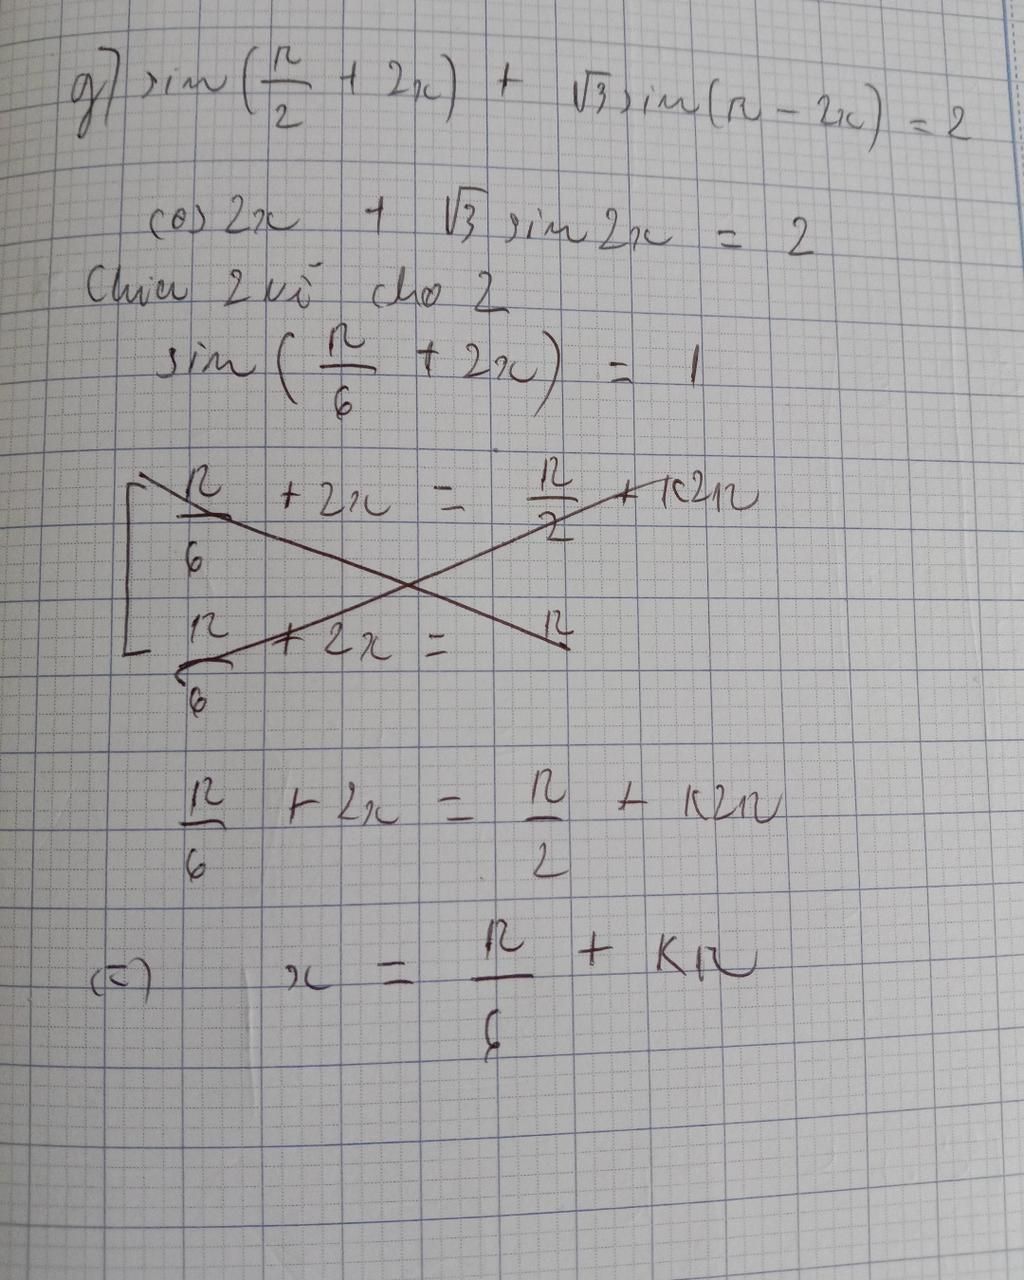 g) sin(π/2 + 2x) + √3 sin(π - 2x) = 2
cos 2x + √3 sin 2x = 2
Chia 2 vế cho 2
sin(π/6 + 2x) = 1
π/6 + 2x = π/2 + k2π
π/6 + 2x = π
π/6 + 2x = π/2 + k2π
(=) x = π/6 + kπ